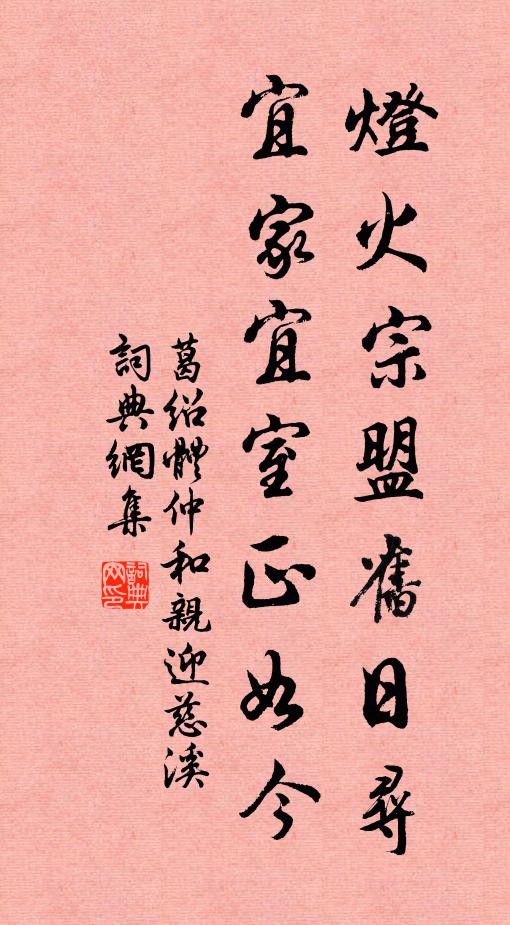 燈火宗盟舊日尋
宜家宜室正如今
葛紹體仲和親迎慈溪
詞典網集
詞典網印